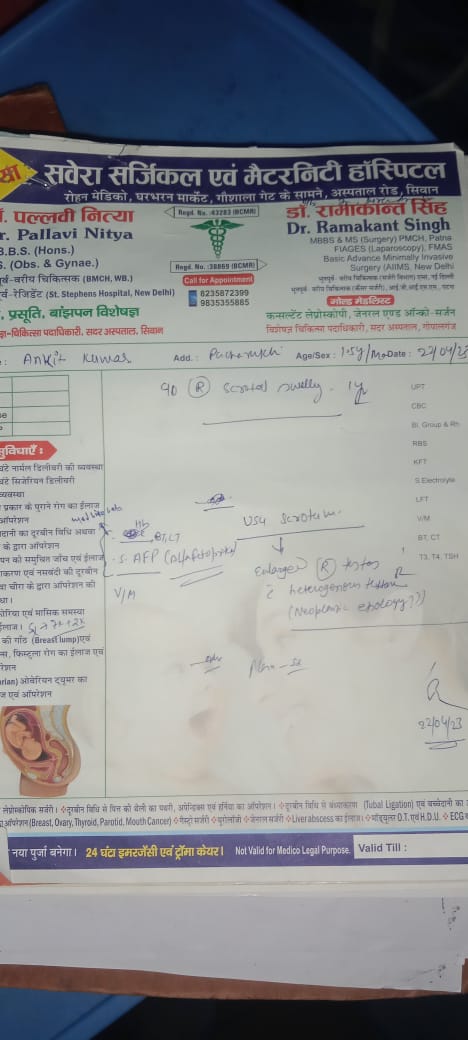 सवेरा सर्जिकल एवं मैटरनिटी हॉस्पिटल
रोहन मेडिको, घरभरन मार्केट, गौशाला गेट के सामने, अस्पताल रोड, सिवान
पल्लवी नित्या
r. Pallavi Nitya
B.B.S. (Hons.)
S. (Obs. & Gynae.)
पूर्व-वरीय चिकित्सक (BMCH, WB.)
पूर्व-रेजिडेंट (St. Stephens Hospital, New Delhi)
, प्रसूति, बांझपन विशेषज्ञ
चिकित्सा पदाधिकारी, सदर अस्पताल, सिवान
Regd. No. :43283 (BCMR)
Regd. No. :38869 (BCMR)
Call for Appointment
6235872399
9835355885
डॉ. रामाकान्त सिंह
Dr. Ramakant Singh
MBBS & MS (Surgery) PMCH, Patna
FIAGES (Laparoscopy), FMAS
Basic Advance Minimally Invasive
Surgery (AIIMS, New Delhi
गोल्ड मेडलिस्ट
कन्सल्टेंट लेप्रोस्कोपी, जेनरल एण्ड ऑन्को-सर्जन
विशेषज्ञ चिकित्सा पदाधिकारी, सदर अस्पताल, गोपालगंज
: Ankit Kumar Add. : Age/Sex : 1.5y/M Date : 22/04/23
(R) scrotal 1y
UPT
CBC
Bl. Group & Rh
RBS
KFT
S.Electrolyte
LFT
V/M
BT, CT
T3, T4, TSH
सुविधाएँ :
घंटे नार्मल डिलीवरी की व्यवस्था
घंटे सिजेरियन डिलीवरी
व्यवस्था
प्रकार के पुराने रोग का ईलाज
ऑपरेशन
दानी का दूरबीन विधि अथवा
के द्वारा ऑपरेशन
पन की समुचित जाँच एवं ईलाज
करण एवं नसबंदी की दूरबीन
चीरा के द्वारा ऑपरेशन की
धा।
कोरिया एवं मासिक समस्या
ईलाज।
की गाँठ (Breast lump) एवं
स, फिस्टुला रोग का ईलाज एवं
रेशन
arian) ओवेरियन ट्यूमर का
ज एवं ऑपरेशन
Hb
BT, CT
S. AFP
V/M
USG Scrotum
Enlarged (R) testes
heterogenous
(Neoplastic etiology??)
Plan
22/04/23
लेप्रोस्कोपिक सर्जरी।
दूरबीन विधि से पित्त की थैली का पथरी, अपेन्डिक्स एवं हर्निया का ऑपरेशन।
दूरबीन विधि से बंध्याकरण (Tubal Ligation) एवं बच्चेदानी का
ऑपरेशन (Breast, Ovary, Thyroid, Parotid, Mouth Cancer) गैस्ट्रो सर्जरी यूरोलॉजी जेनरल सर्जरी Liver abscess का ईलाज। मॉड्यूलर O.T. एवं H.D.U. ECG
नया पुर्जा बनेगा। 24 घंटा इमरजेंसी एवं ट्रॉमा केयर। Not Valid for Medico Legal Purpose. Valid Till :